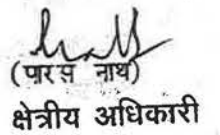 (पारस नाथ)
क्षेत्रीय अधिकारी